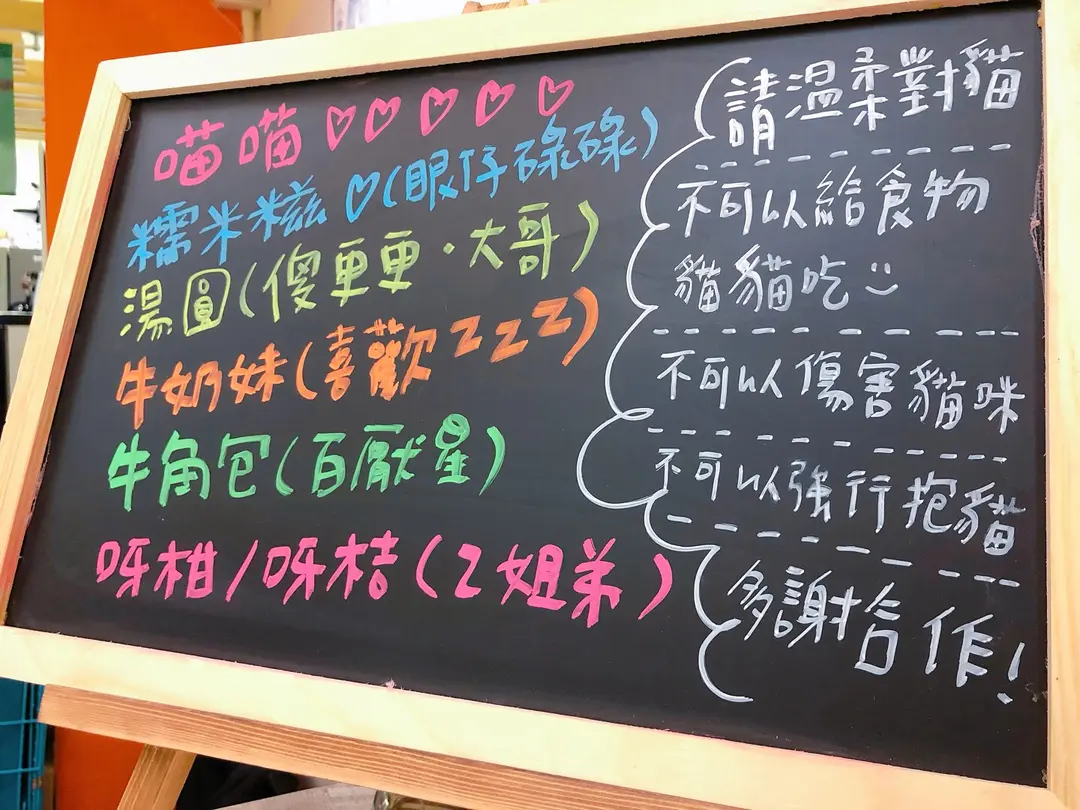 喵喵♡♡♡♡♡
糯米糍♡(眼仔碌碌)
湯圓(傻更更·大哥)
牛奶妹(喜歡ZZZ)
牛角包(百厭星)
呀柑/呀桔(2姐弟)
請溫柔對貓
不可以給食物
貓貓吃:)
不可以傷害貓咪
不可以強行抱貓
多謝合作!